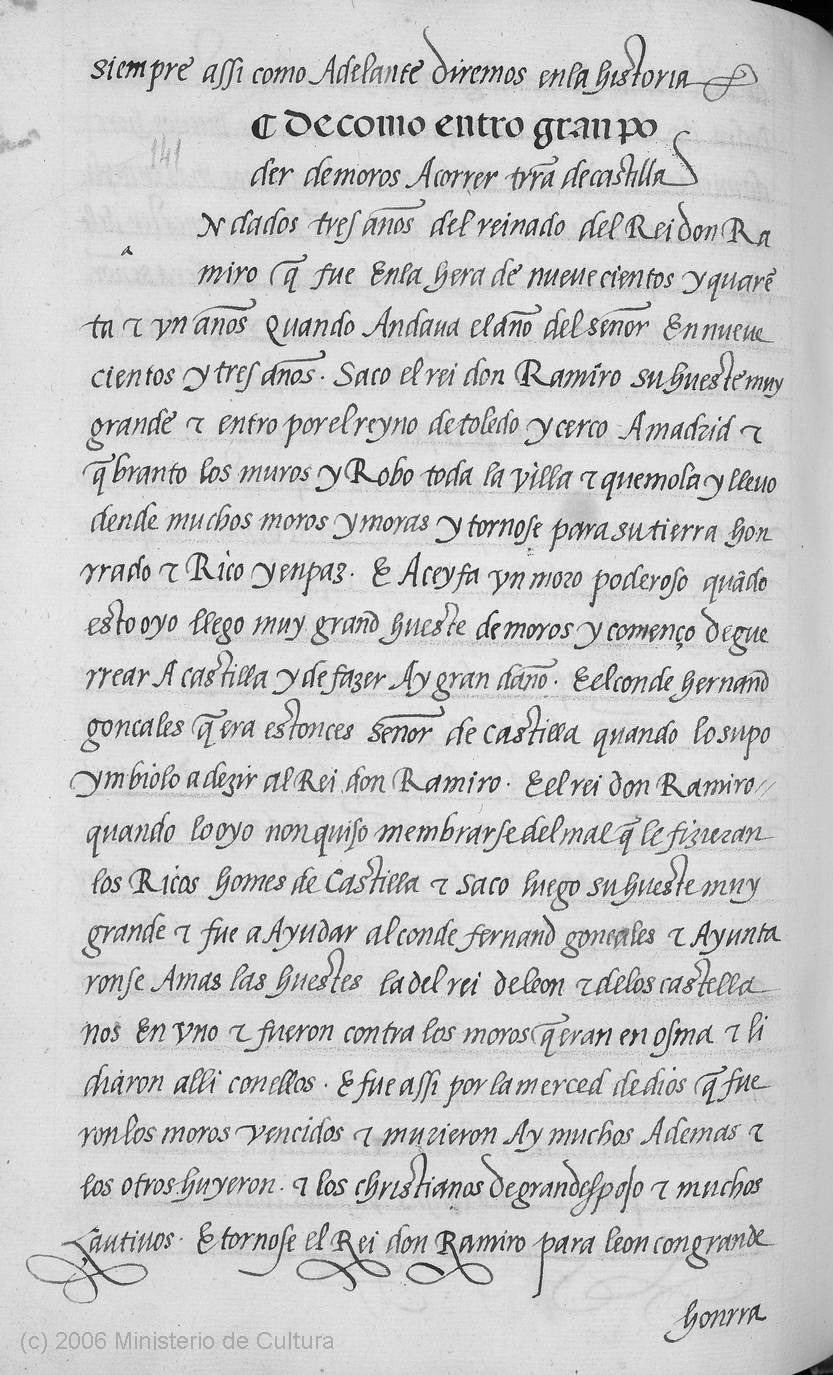 siempre assi como Adelante diremos enla historia
¶ De como entro gran po
141
der demoros Acorrer trr̃a decastilla
Ndados tres an̄os del reinado del Rei don Ra
a
miro q̄ fue Enla hera de nueve cientos y quarē
ta τ vn an̄os Quando Andaua el an̄o del sen̄or En nueve
cientos y tres an̄os. Saco el rei don Ramiro su hueste muy
grande τ entro por el reyno de toledo y cerco A madrid τ
q̄branto los muros y Robo toda la villa τ quemola y lleuo
dende muchos moros y moras y tornose para su tierra hon
rrado τ Rico y en paz. E Aceyfa vn moro poderoso quãdo
esto oyo llego muy grand hueste de moros y començo de gue
rrear A castilla y de fazer Ay gran dan̄o. E el conde hernand
goncales q̄ era estonces sen̄or de castilla quando lo supo
ymbiolo a dezir al Rei don Ramiro. E el rei don Ramiro//
quando lo oyo non quiso membrarse del mal q̄ le fizieran
los Ricos homes de Castilla τ saco luego su hueste muy
grande τ fue a Ayudar al conde fernand goncales τ Ayunta
ronse Amas las huestes la del rei de leon τ de los castella
nos En vno τ fueron contra los moros q̄ eran en osma τ li
diaron alli con ellos. E fue assi por la merced de dios q̄ fue
ron los moros vencidos τ murieron Ay muchos Ademas τ
los otros huyeron. τ los christianos de grand espojo τ muchos
Cautiuos. E tornose el Rei don Ramiro para leon con grande
honrra
(c) 2006 Ministerio de Cultura